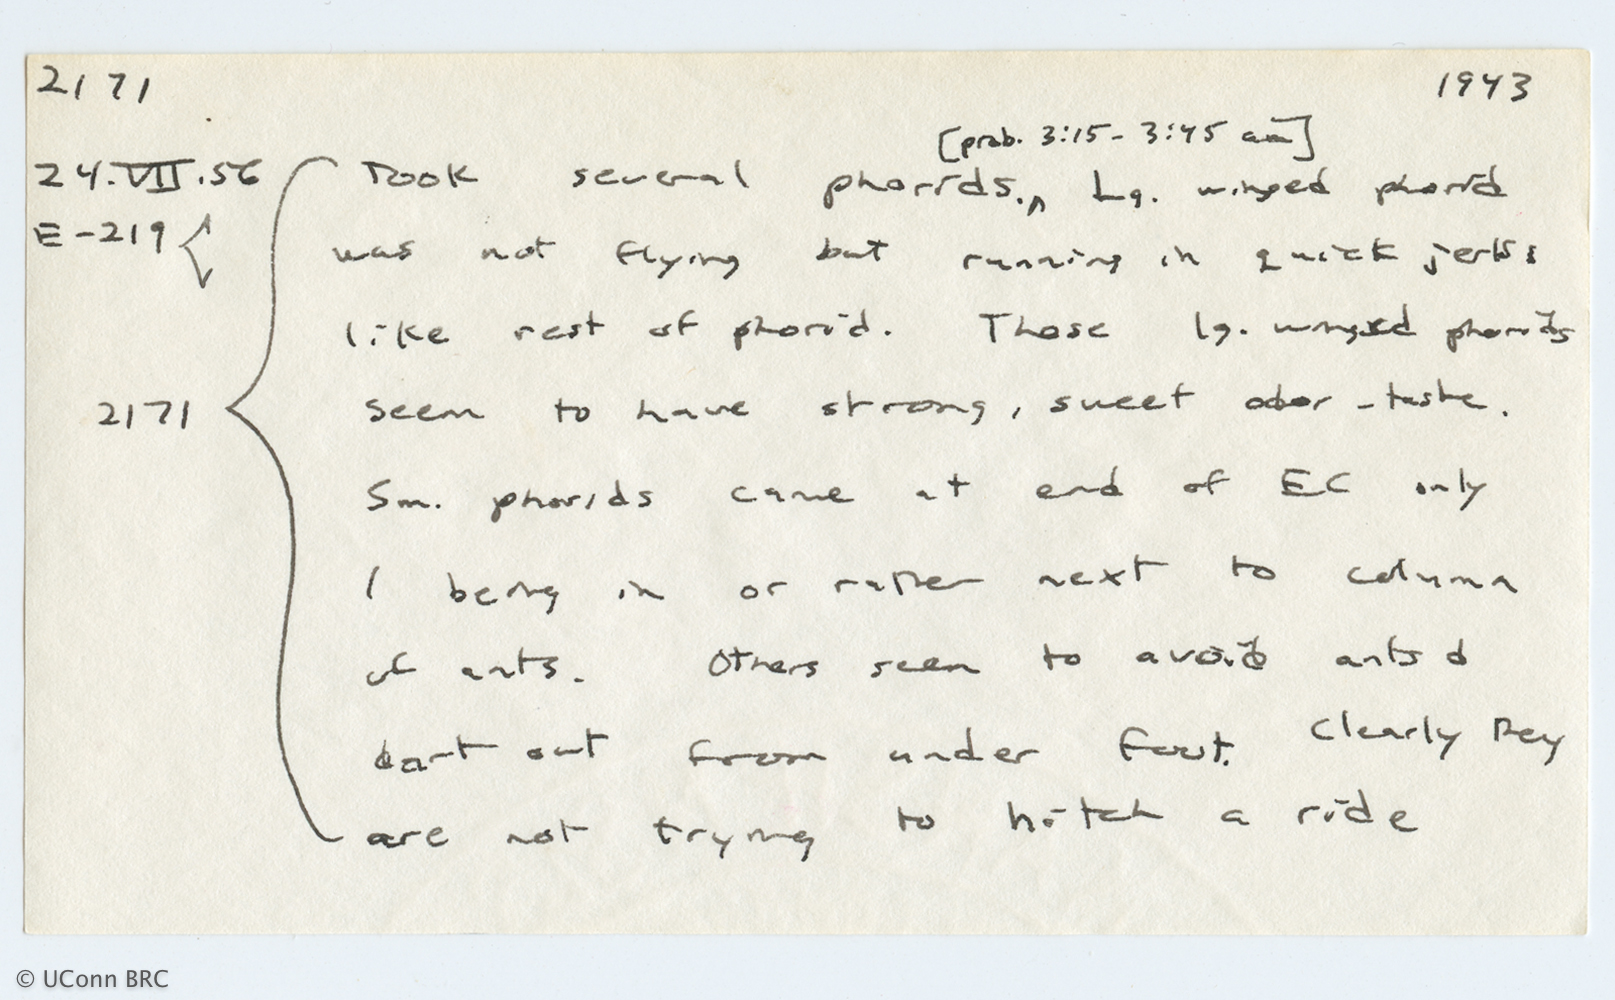 2171 1943
[prob. 3:15 - 3:45 am]
24.VII.56 Took several phorids.^ Lg. winged phorid
E-219 was not flying but running in quick jerks
like rest of phorid. Those lg. winged phorids
2171 seem to have strong, sweet odor-taste.
Sm. phorids came at end of EC only
1 being in or rather next to column
of ants. Others seem to avoid ants &
dart out from under foot. Clearly they
are not trying to hitch a ride
© UConn BRC